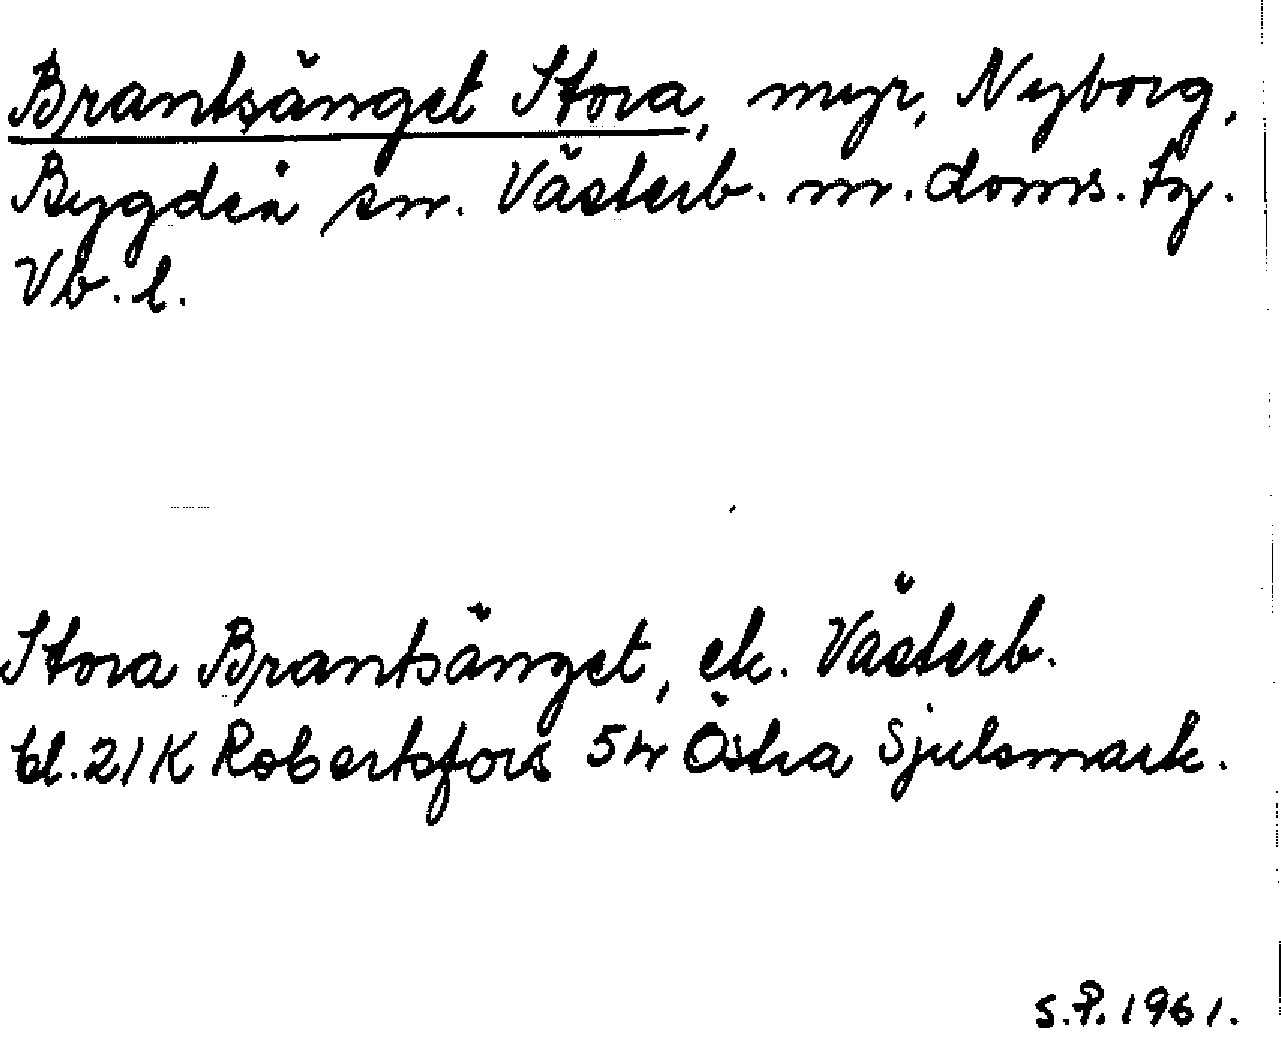 Brantsänget Stora, myr, Nyborg,
Bygdeå sn. Västerb. n. doms. fg.
Vb. l.
Stora Brantsänget, ek. Västerb.
bl. 21K Robertsfors 5 n Östra Sjulsmark.
S.P. 1961.